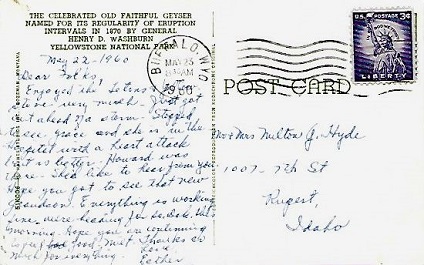 THE CELEBRATED OLD FAITHFUL GEYSER
NAMED FOR ITS REGULARITY OF ERUPTION
INTERVALS IN 1870 BY GENERAL
HENRY D. WASHBURN
YELLOWSTONE NATIONAL PARK
May 22 - 1960
Dear Folks,
Enjoyed the
very much. Just got
ahead of a storm. Stopped
to see Grace and she is in the
Hospital with a heart attack
but is better. Howard was
there. She'd like to hear from you
Hope you got to see that new
grandson. Everything is working
fine. We're heading for
morning. Hope you are continuing
to feel good, Milt. Thanks so
much for everything.
Love
Esther
BUFFALO, WYO.
MAY 23
AM
1960
U.S. POSTAGE 3¢
LIBERTY
POST CARD
Mr & Mrs Milton G. Hyde
1007 - 7th St
Rupert,
Idaho